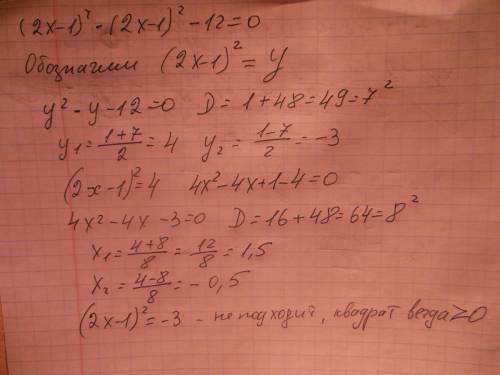 (2x-1)⁴-(2x-1)²-12=0
Обозначим (2x-1)²=y
y²-y-12=0 D=1+48=49=7²
y₁=(1+7)/2=4 y₂=(1-7)/2=-3
(2x-1)²=4 4x²-4x+1-4=0
4x²-4x-3=0 D=16+48=64=8²
x₁=(4+8)/8=12/8=1,5
x₂=(4-8)/8=-0,5
(2x-1)²=-3 - не подходит, квадрат всегда ≥0